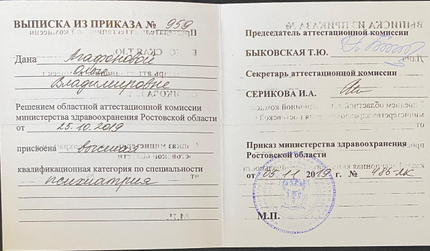 ВЫПИСКА ИЗ ПРИКАЗА № 959
Дана Агафоновой
Ольге
Владимировне
Решением областной аттестационной комиссии
министерства здравоохранения Ростовской области
от 25.10.2019
присвоена высшая
квалификационная категория по специальности
психиатрия
Председатель аттестационной комиссии
БЫКОВСКАЯ Т.Ю.
Секретарь аттестационной комиссии
СЕРИКОВА И.А.
Приказ министерства здравоохранения
Ростовской области
от 05.11 2019 г. № 486-лк
М.П.